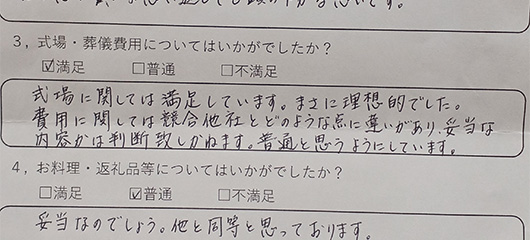 3, 式場・葬儀費用についてはいかがでしたか？
☑満足 □普通 □不満足
式場に関しては満足しています。まさに理想的でした。
費用に関しては競合他社とどのような点に違いがあり、妥当な
内容かは判断致しかねます。普通と思うようにしています。
4, お料理・返礼品等についてはいかがでしたか？
□満足 ☑普通 □不満足
妥当なのでしょう。他と同等と思っております。